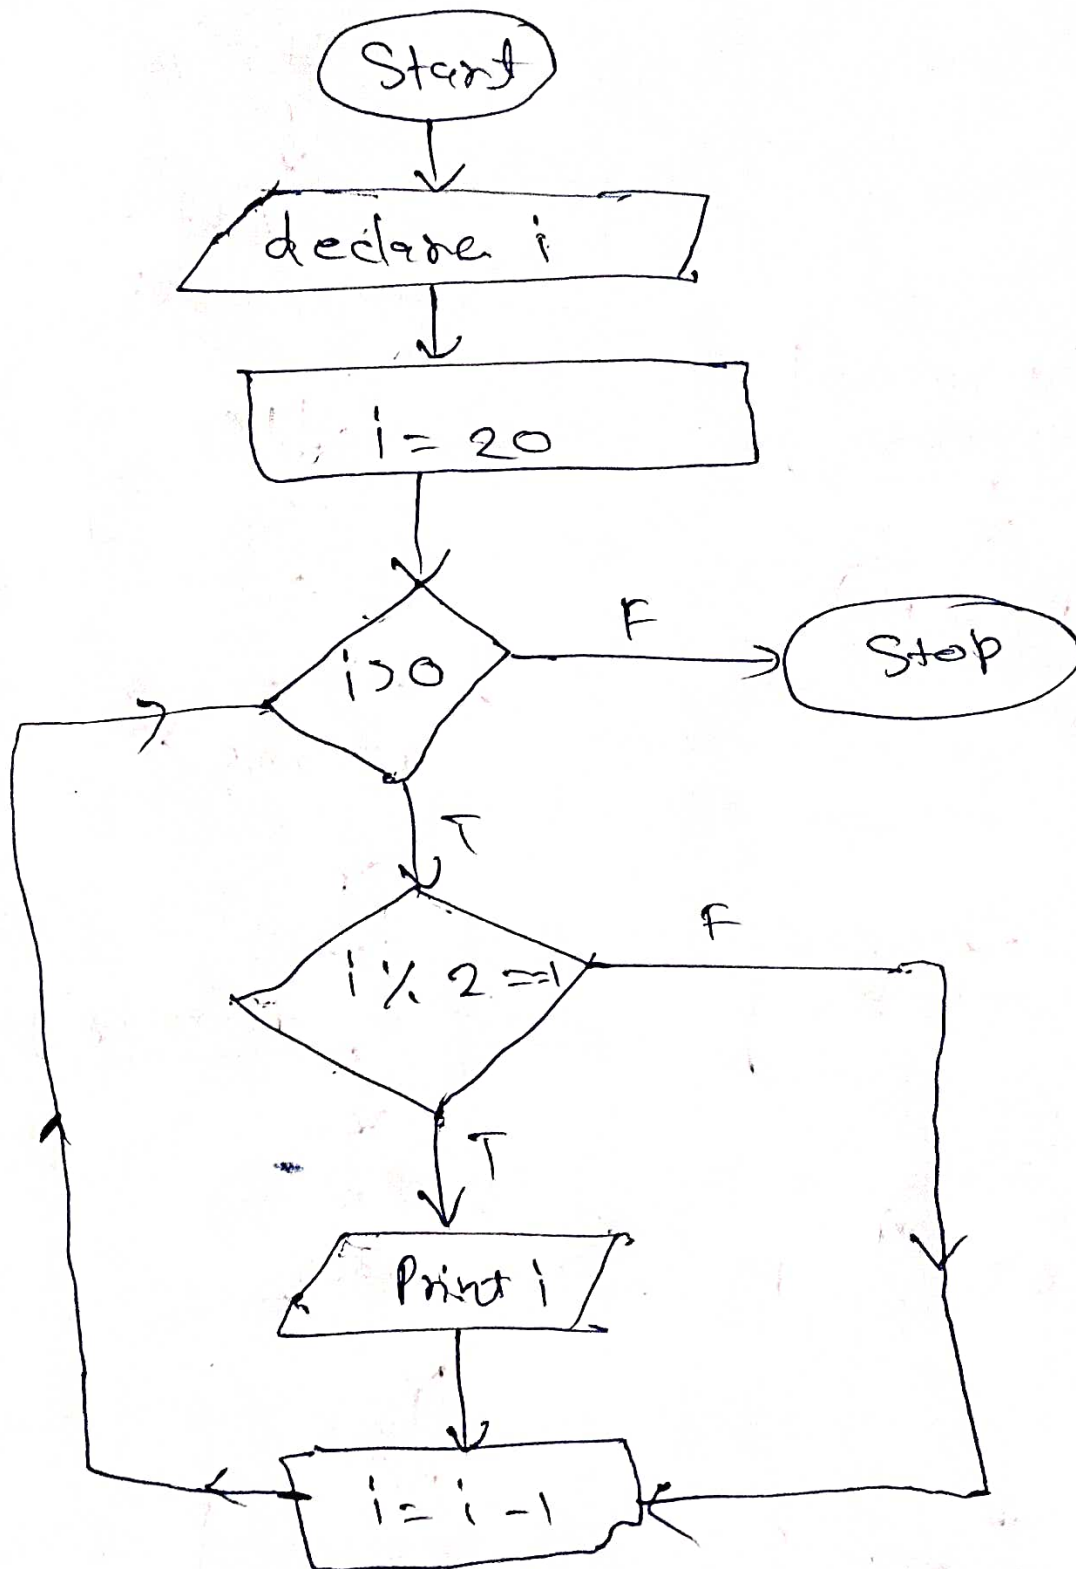 Start
declare i
i = 20
i>0
F
Stop
T
i % 2 ==1
F
T
Print i
i = i - 1